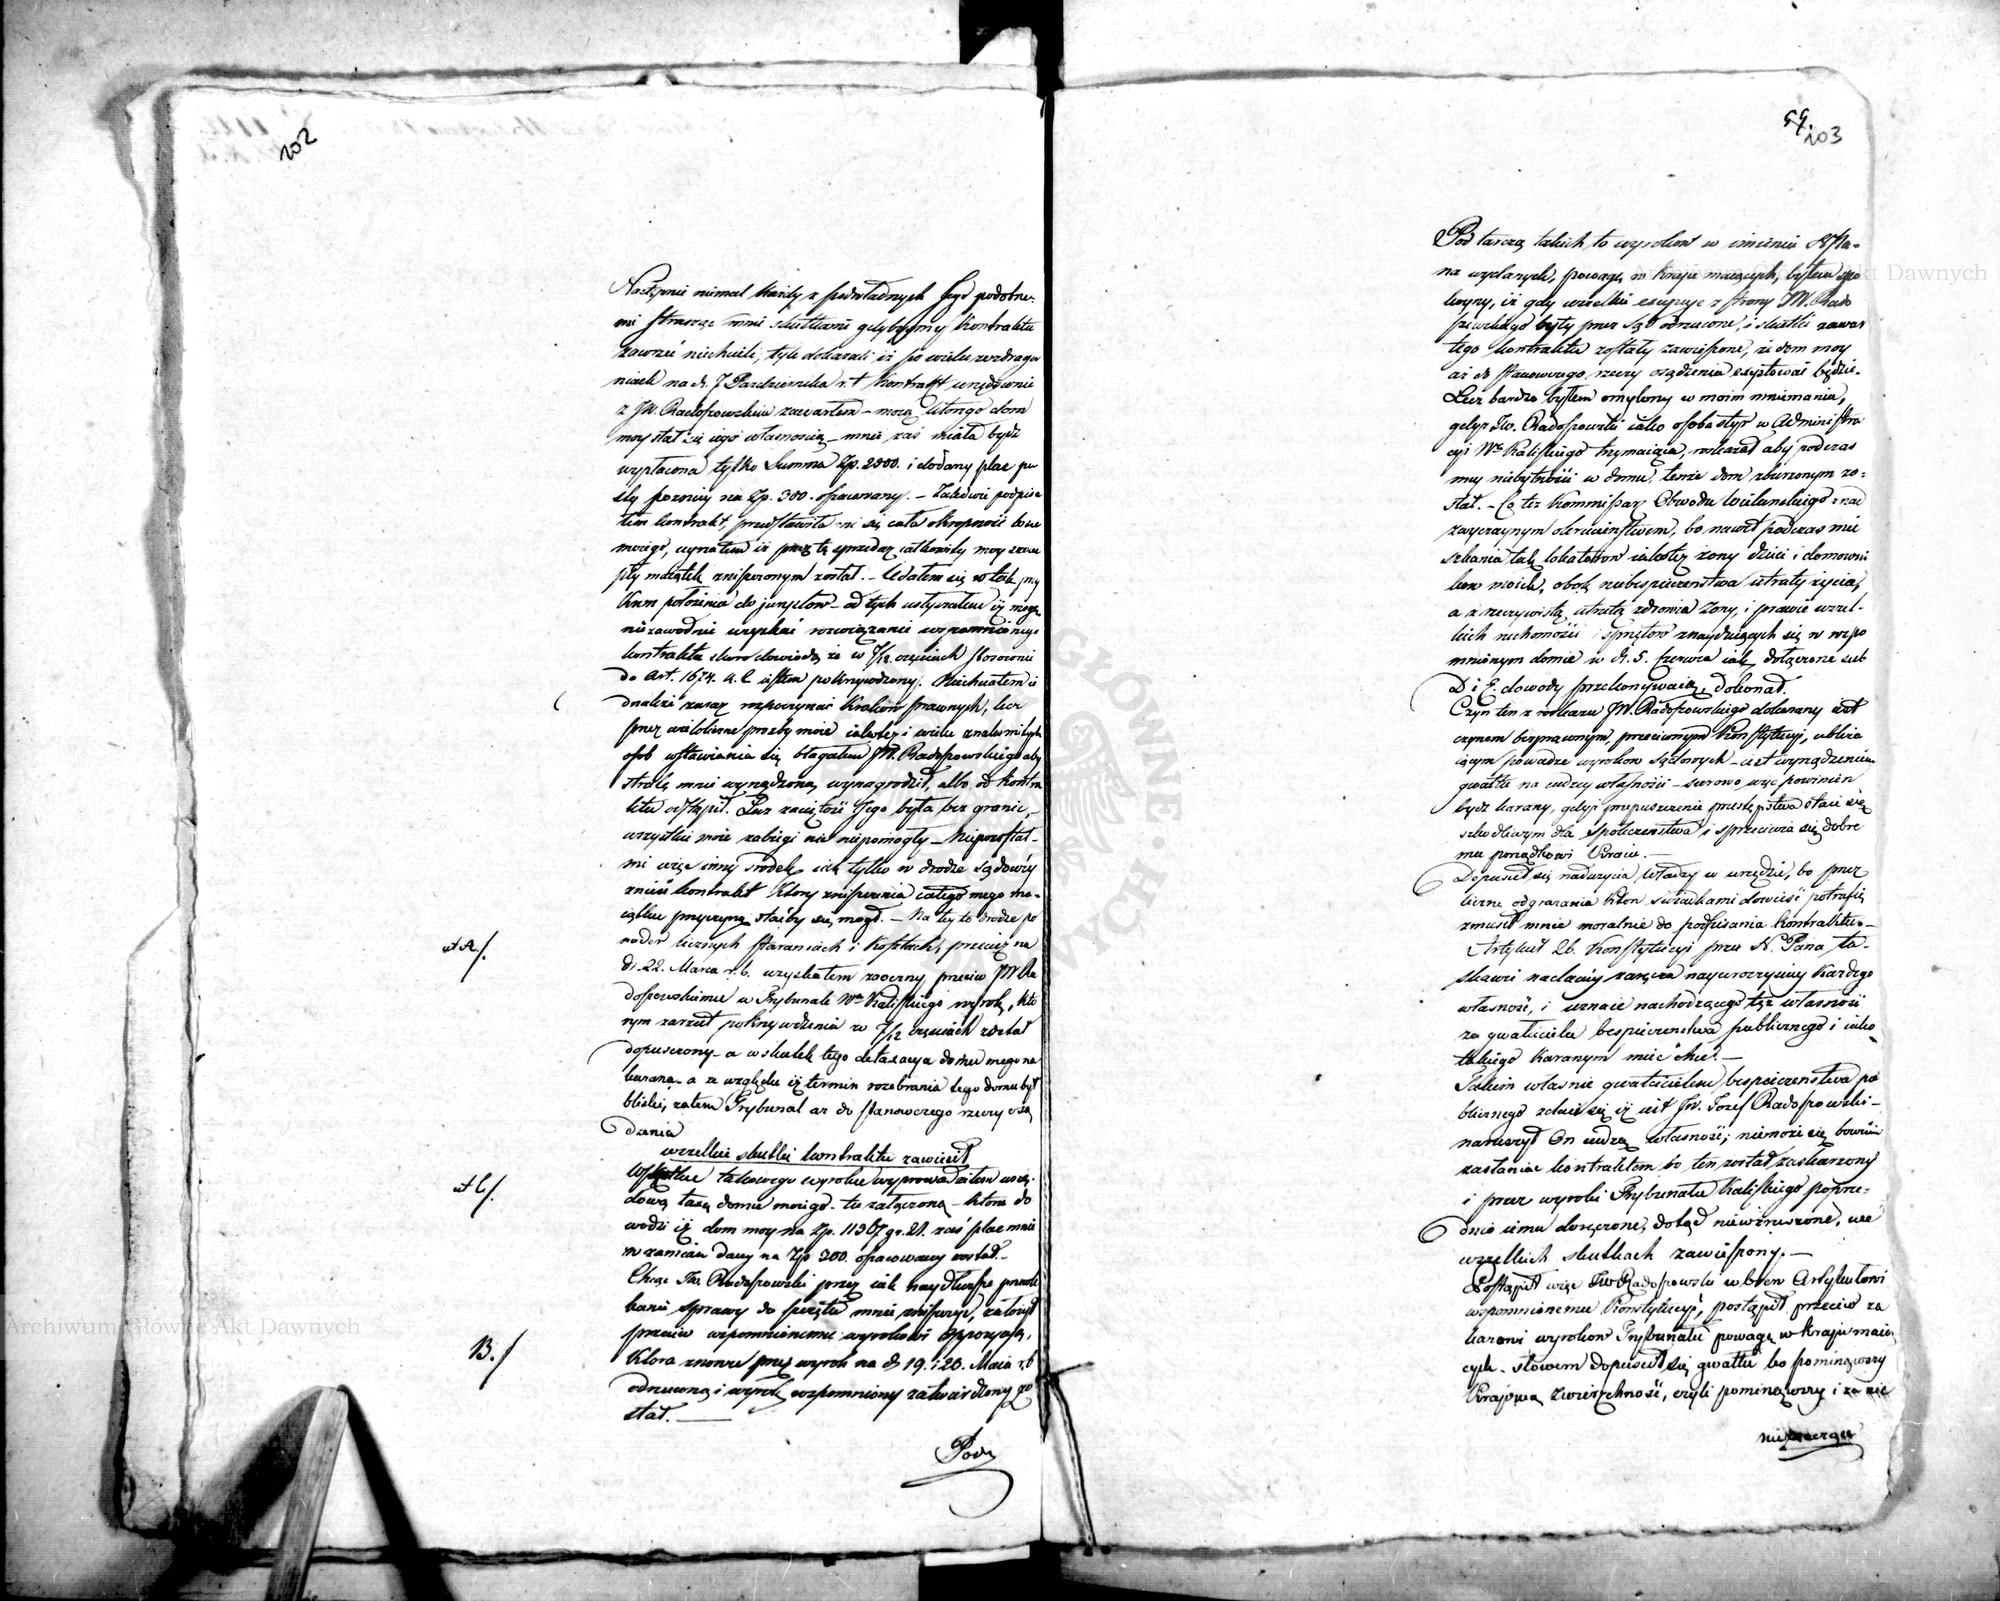 102
Następnie niemal każdy z podwładnych Jego podobne-
mi strasząc mnie skutkami gdybyśmy kontraktu
zawrzeć niechcieli, tyle dokazali iż po wielu wzdraga
niach na d. 7 Pazdziernika r. t. kontrakt urzędownie
z JW. Radoszowskim zawarłem – mocą którego dom
moy stał się iego własnością – mnie zaś miała bydź
wypłacona tylko Summa Zp. 2500. i dodany plac pu
sty pozorny na Zp. 300. oszacowany. – Zaledwie podpisa
łem kontrakt, przedstawiła mi się cała okropność losu
moiego, uyrzałem iż przez tę sprzedaż całkowity moy szczu
pły maiątek zniszczonym został. – Udałem się w tak przy
krem położeniu do jurystow – od tych usłyszałem iż mogę
niezawodnie uzyskać rozwiązanie wspomnionego
kontraktu skoro dowiodę że w 7/12 częściach stosownie
do Art. 1674. K. C. iestem pokrzywdzony. Niechciałem ie
dnakże zaraz rozpoczynać kroków prawnych, lecz
przez wielokrotne prozby moie iakoteż i wielu znakomitych
osob wstawiania się błagałem JW. Radoszowskiego aby
stratę mnie wyrządzoną wynagrodził, albo od kontra
ktu odstąpił. Lecz zaciętość Jego była bez granic,
wszystkie moie zabiegi nic niepomogły – Niepozostał
mi więc inny srodek iak tylko w drodze sądowéy
znieść kontrakt który zniszczenia całego mego ma-
iątku przyczyną staćby się mogł. – Na tey to drodze po
nader licznych staraniach i kosztach, przecież na
A A/.
d. 22. Marca r. b. uzyskałem zaoczny przeciw JW Ra
doszowskiemu w Trybunale Wa Kaliskiego wyrok, kto
rym zarzut pokrzywdzenia w 7/12 częściach został
dopuszczony – a w skutek tego detaxacya domu mego na
kazana – a ze względu iż termin rozebrania tego domu był
bliski, zatem Trybunał aż do stanowczego rzeczy osą
dzenia
wszelkie skutki kontraktu zawiesił
W skutku takowego wyroku wyprowadziłem urzę-
A C/.
dową taxę domu moiego – tu załączoną – ktora do
wodzi iż dom moy na Zp. 11367 gr. 21. zaś plac mnie
w zamian dany na Zp 300. oszacowany został. –
Chcąc JW Radoszowski przez iak naydłuższe przewle
kanie sprawy do szczętu mnie zniszczyć, założył
przeciw wspomnionemu wyrokowi oppozycyą,
B./
Ktora znowu przez wyrok na d 19. i 20. Maia r. b
odrzuconą i wyrok wspomniony zatwierdzony zo
stał. –
Pod
59.
103
Pod tarczą takich to wyrokow w imieniu N Pa-
na wydanych, powagę w kraju maiących, byłem spo
koyny, iż gdy wszelkie excepcye z strony JW. Rado
szowskiego były przez Sąd odrzucone, i skutki zawar
tego kontraktu zostały zawieszone, że dom moy
aż do stanowczego rzeczy osądzenia exystować będzie.
Lecz bardzo byłem omylony w moim mniemaniu,
gdyż Jw. Radoszowski iako osoba ster w Administra
cyi Wa Kaliskiego trzymaiąca, rozkazał aby podczas
mey niebytności w domu, tenże dom zburzonym zo-
stał. – Co też Kommissarz Obwodu Wieluńskiego z nad
zwyczaynym okrucieństwem, bo nawet podczas mie
szkania tak lokatorow iakoteż żony dzieci i domowni
kow moich, obok niebespieczenstwa utraty życia,
a z rzeczywistą utratą zdrowia żony, i prawie wszel-
kich ruchomości i sprzętow znayduiących się w wspo
mnionym domie w d. 5. Czerwca iak dołączone sub
D i E. dowody przekonywaią, dokonał.
Czyn ten z rozkazu JW. Radoszowskiego dokonany iest
czynem bezprawnym, przeciwnym Konstytucyi, ubliża
iącym powadze wyrokow Sądowych – iest wyrządzeniem
gwałtu na cudzey własności – surowo więc powinien
bydź karany, gdyż przepuszczenie przestępstwa staie się
szkodliwym dla społeczeństwa i sprzeciwia się dobre
mu porządkowi Kraiu. –
Dopuscił się nadużycia władzy w urzędzie, bo przez
liczne odgrażania ktore świadkami dowieść potrafię
zmusił mnie moralnie do podpisania kontraktu. –
Artykuł 26. Konstytucyi przez N. Pana ła-
skawie nadanéy zaręcza nayuroczyściey każdego
własność, i uznaie nachodzącego tęż własność
za gwałciciela bespieczenstwa publicznego i iako
takiego karanym mieć chce. –
Takim własnie gwałcicielem bespieczenstwa pu
blicznego zdaie się iż iest JW. Jozef Radoszowski –
naruszył On cudzą własność; niemoże się bowiem
zasłaniać kontraktem bo ten został zaskarzony
i przez wyroki Trybunału Kaliskiego poprze-
dnio iemu doręczone, dotąd niewzruszone, we
wszelkich skutkach zawieszony. –
Postąpił więc JW Radoszowski wbrew Artykułowi
wspomnionemu Konstytucyi, postąpił przeciw za
kazowi wyrokow Trybunału powagę w kraju maią
cych – słowem dopuścił się gwałtu bo pominąwszy
Kraiową Zwierzchność, czyli pominąwszy i za nic